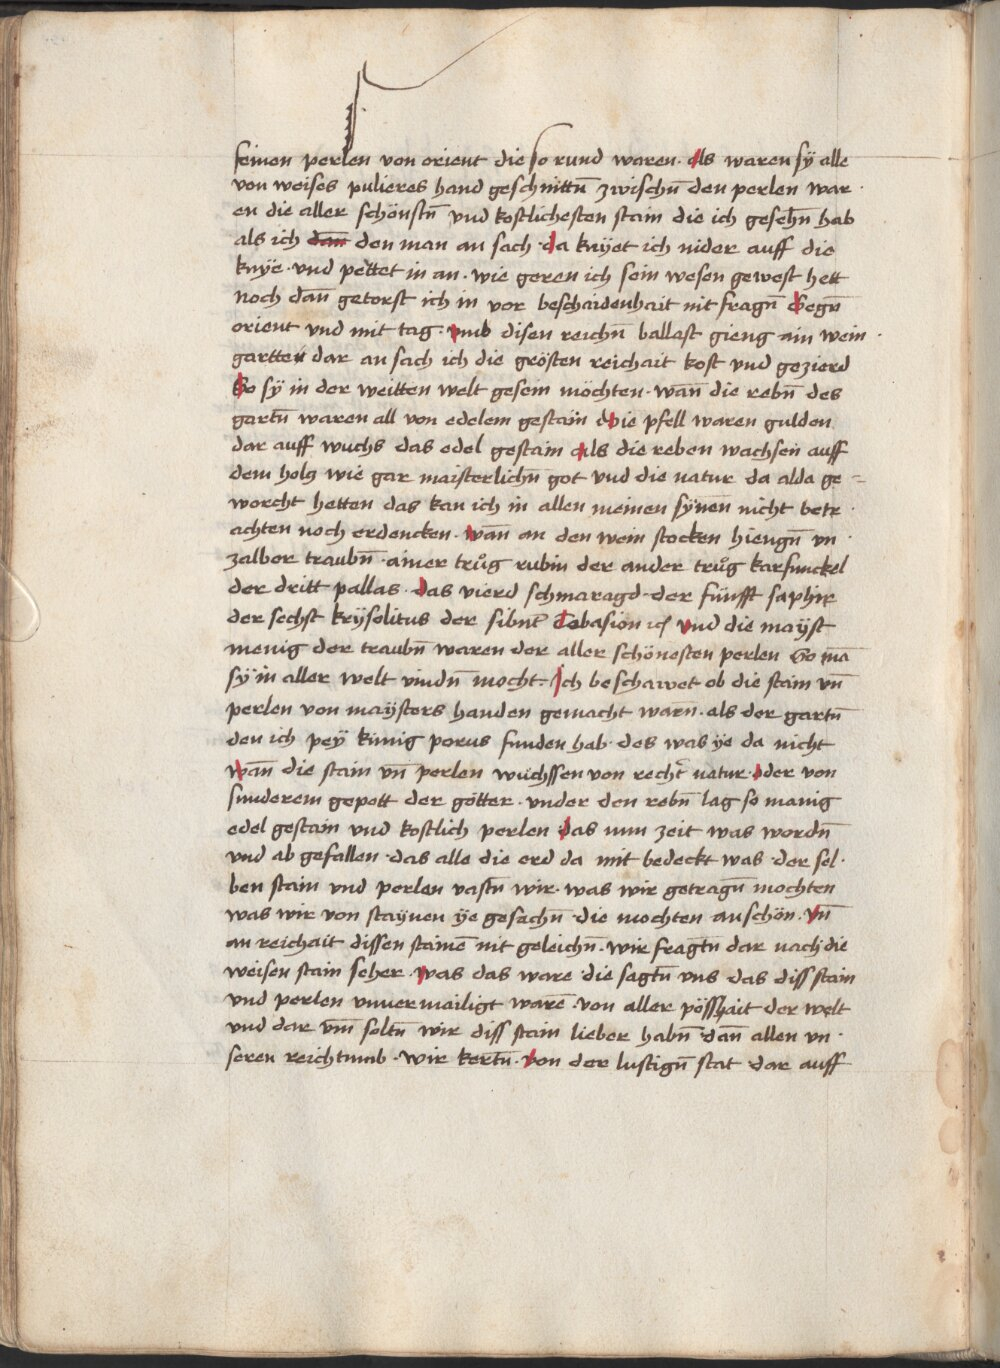 seinen perlen von orient die so rund waren · als waren sÿ alle
von weises pulieres hand geschnittn̄ zwischn̄ den perlen war ·
en die aller schönstn̄ vnd kostlichesten stain die ich gesehn̄ hab
als ich dan̄ den man an sach · da knÿet ich nider auff die
knÿe · vnd pettet in an · wie geren ich sein wesen gewest hett
Noch dan̄ getorst ich in vor beschaidenhait nit fragn̄ Gegn̄
orient vnd mit tag · vmb disen reichn̄ ballast gieng ain wein ·
gartten dar an sach ich die grösten reichait kost vnd gezierd
So sÿ in der weitten welt gesein möchten · wan̄ die rebn̄ des
gartn̄ waren all von edelem gestain die pfell waren gulden
dar auff wuchs das edel gestain als die reben wachsen auff
dem holcz wie gar maisterlichn̄ got vnd die natur da alda ge =
worcht hetten das kan ich in allen meinen sÿnen̄ nicht betr ·
achten noch erdencken · wan̄ an den wein stocken hiengn̄ vn ·
zalber traubn̄ · ainer trůg rubin der ander trůg karfunckel
der dritt pallas · das vierd schmaragd · der fünfft saphir
der sechst krÿsolitus der sibnt̄ Tobasion ⁊c vnd die maÿst
menig der traubn̄ waren der aller schönesten perlen So ma̅
sÿ in aller welt vindn̄ mocht · Ich beschawet ob die stain vn̄
perlen von maÿsters handen gemacht warn̄ · als der gartn̄
den ich peÿ künig porus funden hab · des was ÿe da nicht
wan̄ die stain vn̄ perlen wuchssen von recht̄ natur · oder von
sunderem gepott der götter · vnder den rebn̄ lag so manig
edel gestain vnd kostlich perlen das nun zeit was wordn̄
vnd ab gefallen · das alle die erd da mit bedeckt was · der sel ·
ben stain vnd perlen vastn̄ wir · was wir getragn̄ mochten
was wir von staÿnen ÿe gesachn̄ · die mochten an schön · vn̄
an reichait dissen stainen̄ nit geleichn̄ · wir fragtn̄ dar nach die
weisen stain seher · was das ware die sagtn̄ vns das diss stain
vnd perlen vnuermailigt waren̄ · von aller pösshait der welt
vnd dar vm̄ soltn̄ wir diss stain lieber habn̄ dan̄ allen vn ·
seren reichtumb · wir kertn̄ · von der lustign̄ stat dar auff